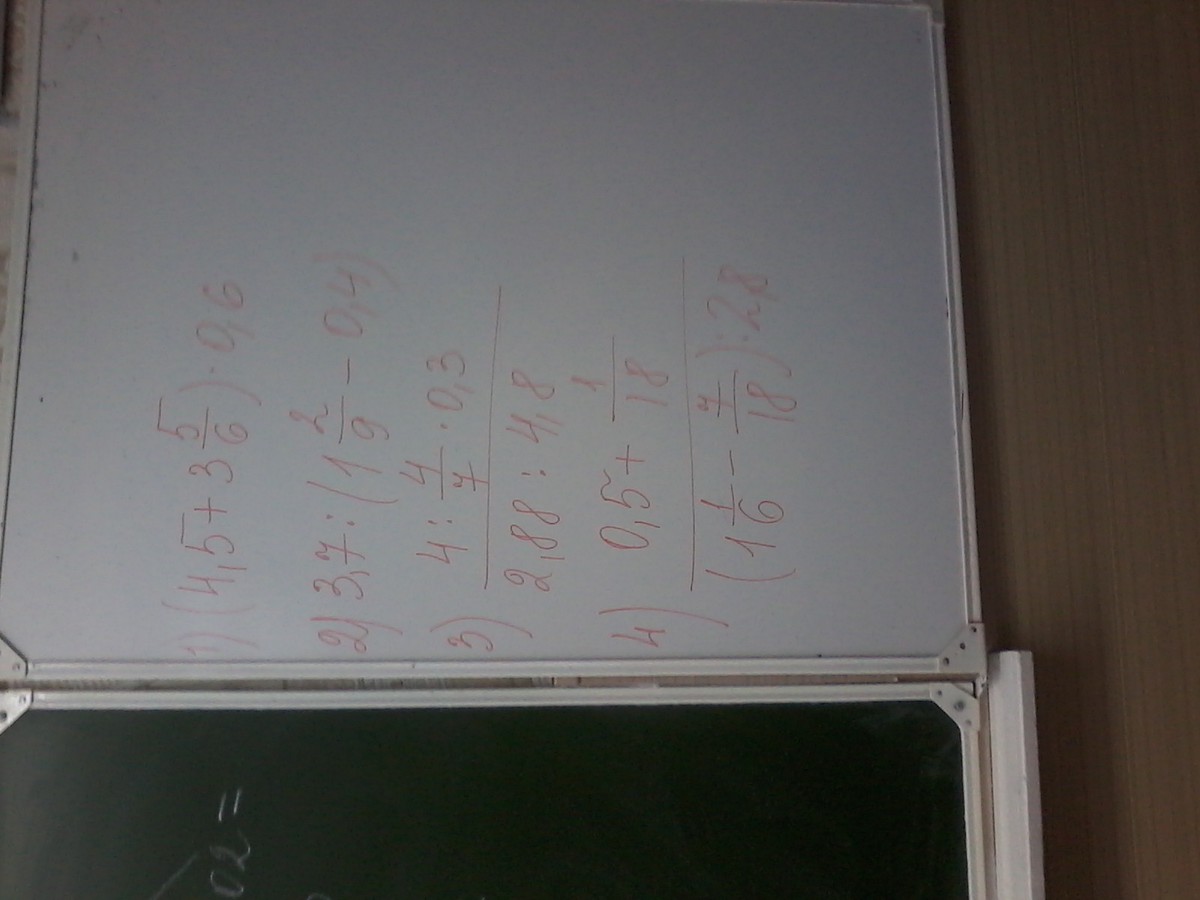 1) (4,5 + 3 5/6) · 0,6
2) 3,7 : (1 2/9 - 0,4)
3) 4 : 4/7 · 0,3
2,88 : 4,8
4) 0,5 + 1/18
(1 1/6 - 7/18) : 2,8